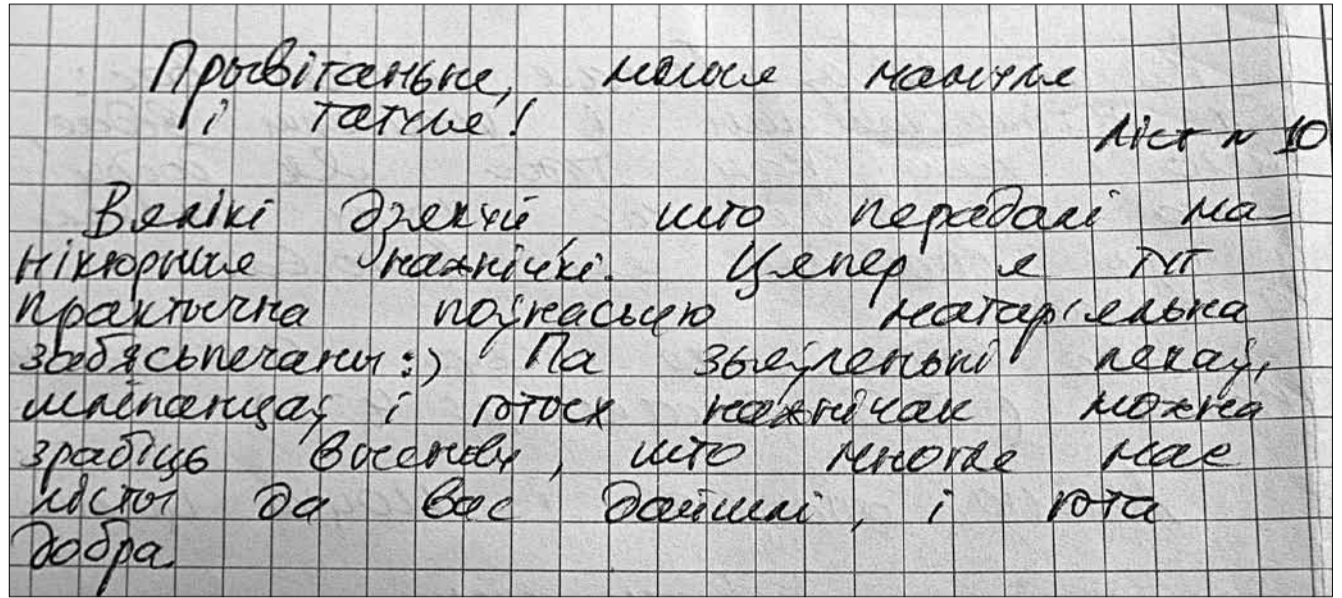 Прывітаньне, мілыя мамуля
і татуля!
Ліст № 10
Вялікі дзякуй, што перадалі ма-
нікюрныя нажнічкі. Цяпер я тут
практычна поўнасьцю матарыяльна
забясьпечаны :) Па зьяўленьні лекаў,
шлёпанцаў і гэтых нажнічак можна
зрабіць выснову, што многія мае
лісты да вас дайшлі, і гэта
добра.